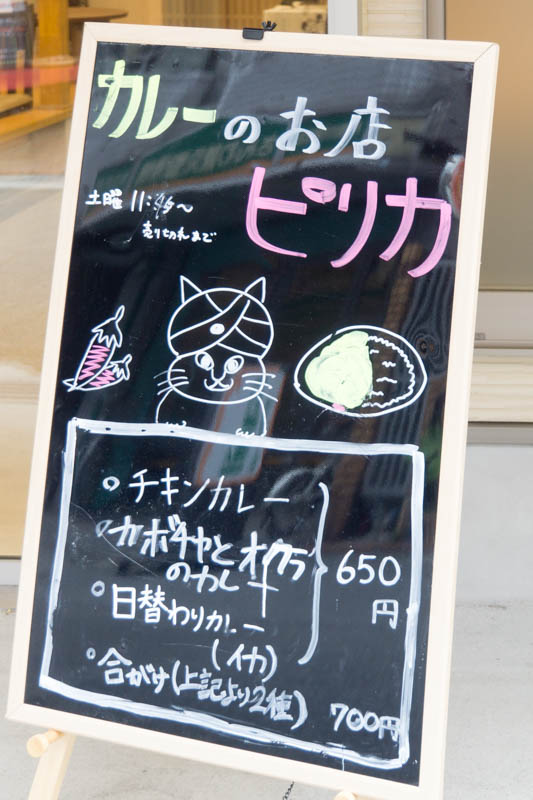 カレーのお店
ピリカ
土曜 11:45〜
売り切れまで
チキンカレー
カボチャとオクラ
のカレー
日替わりカレー
(イカ)
650
円
合がけ(上記より2種)
700円